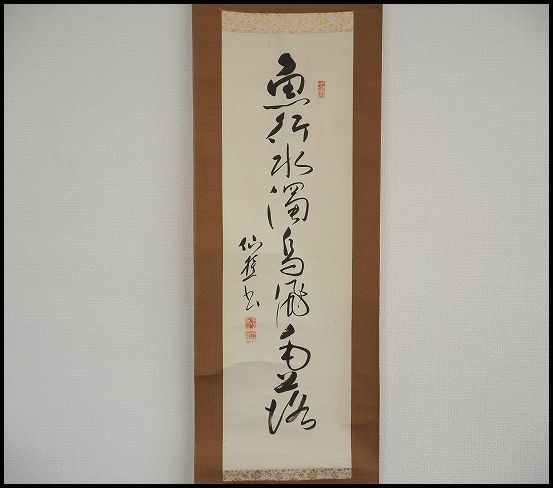 魚行水濁鳥飛毛落
仙樵書